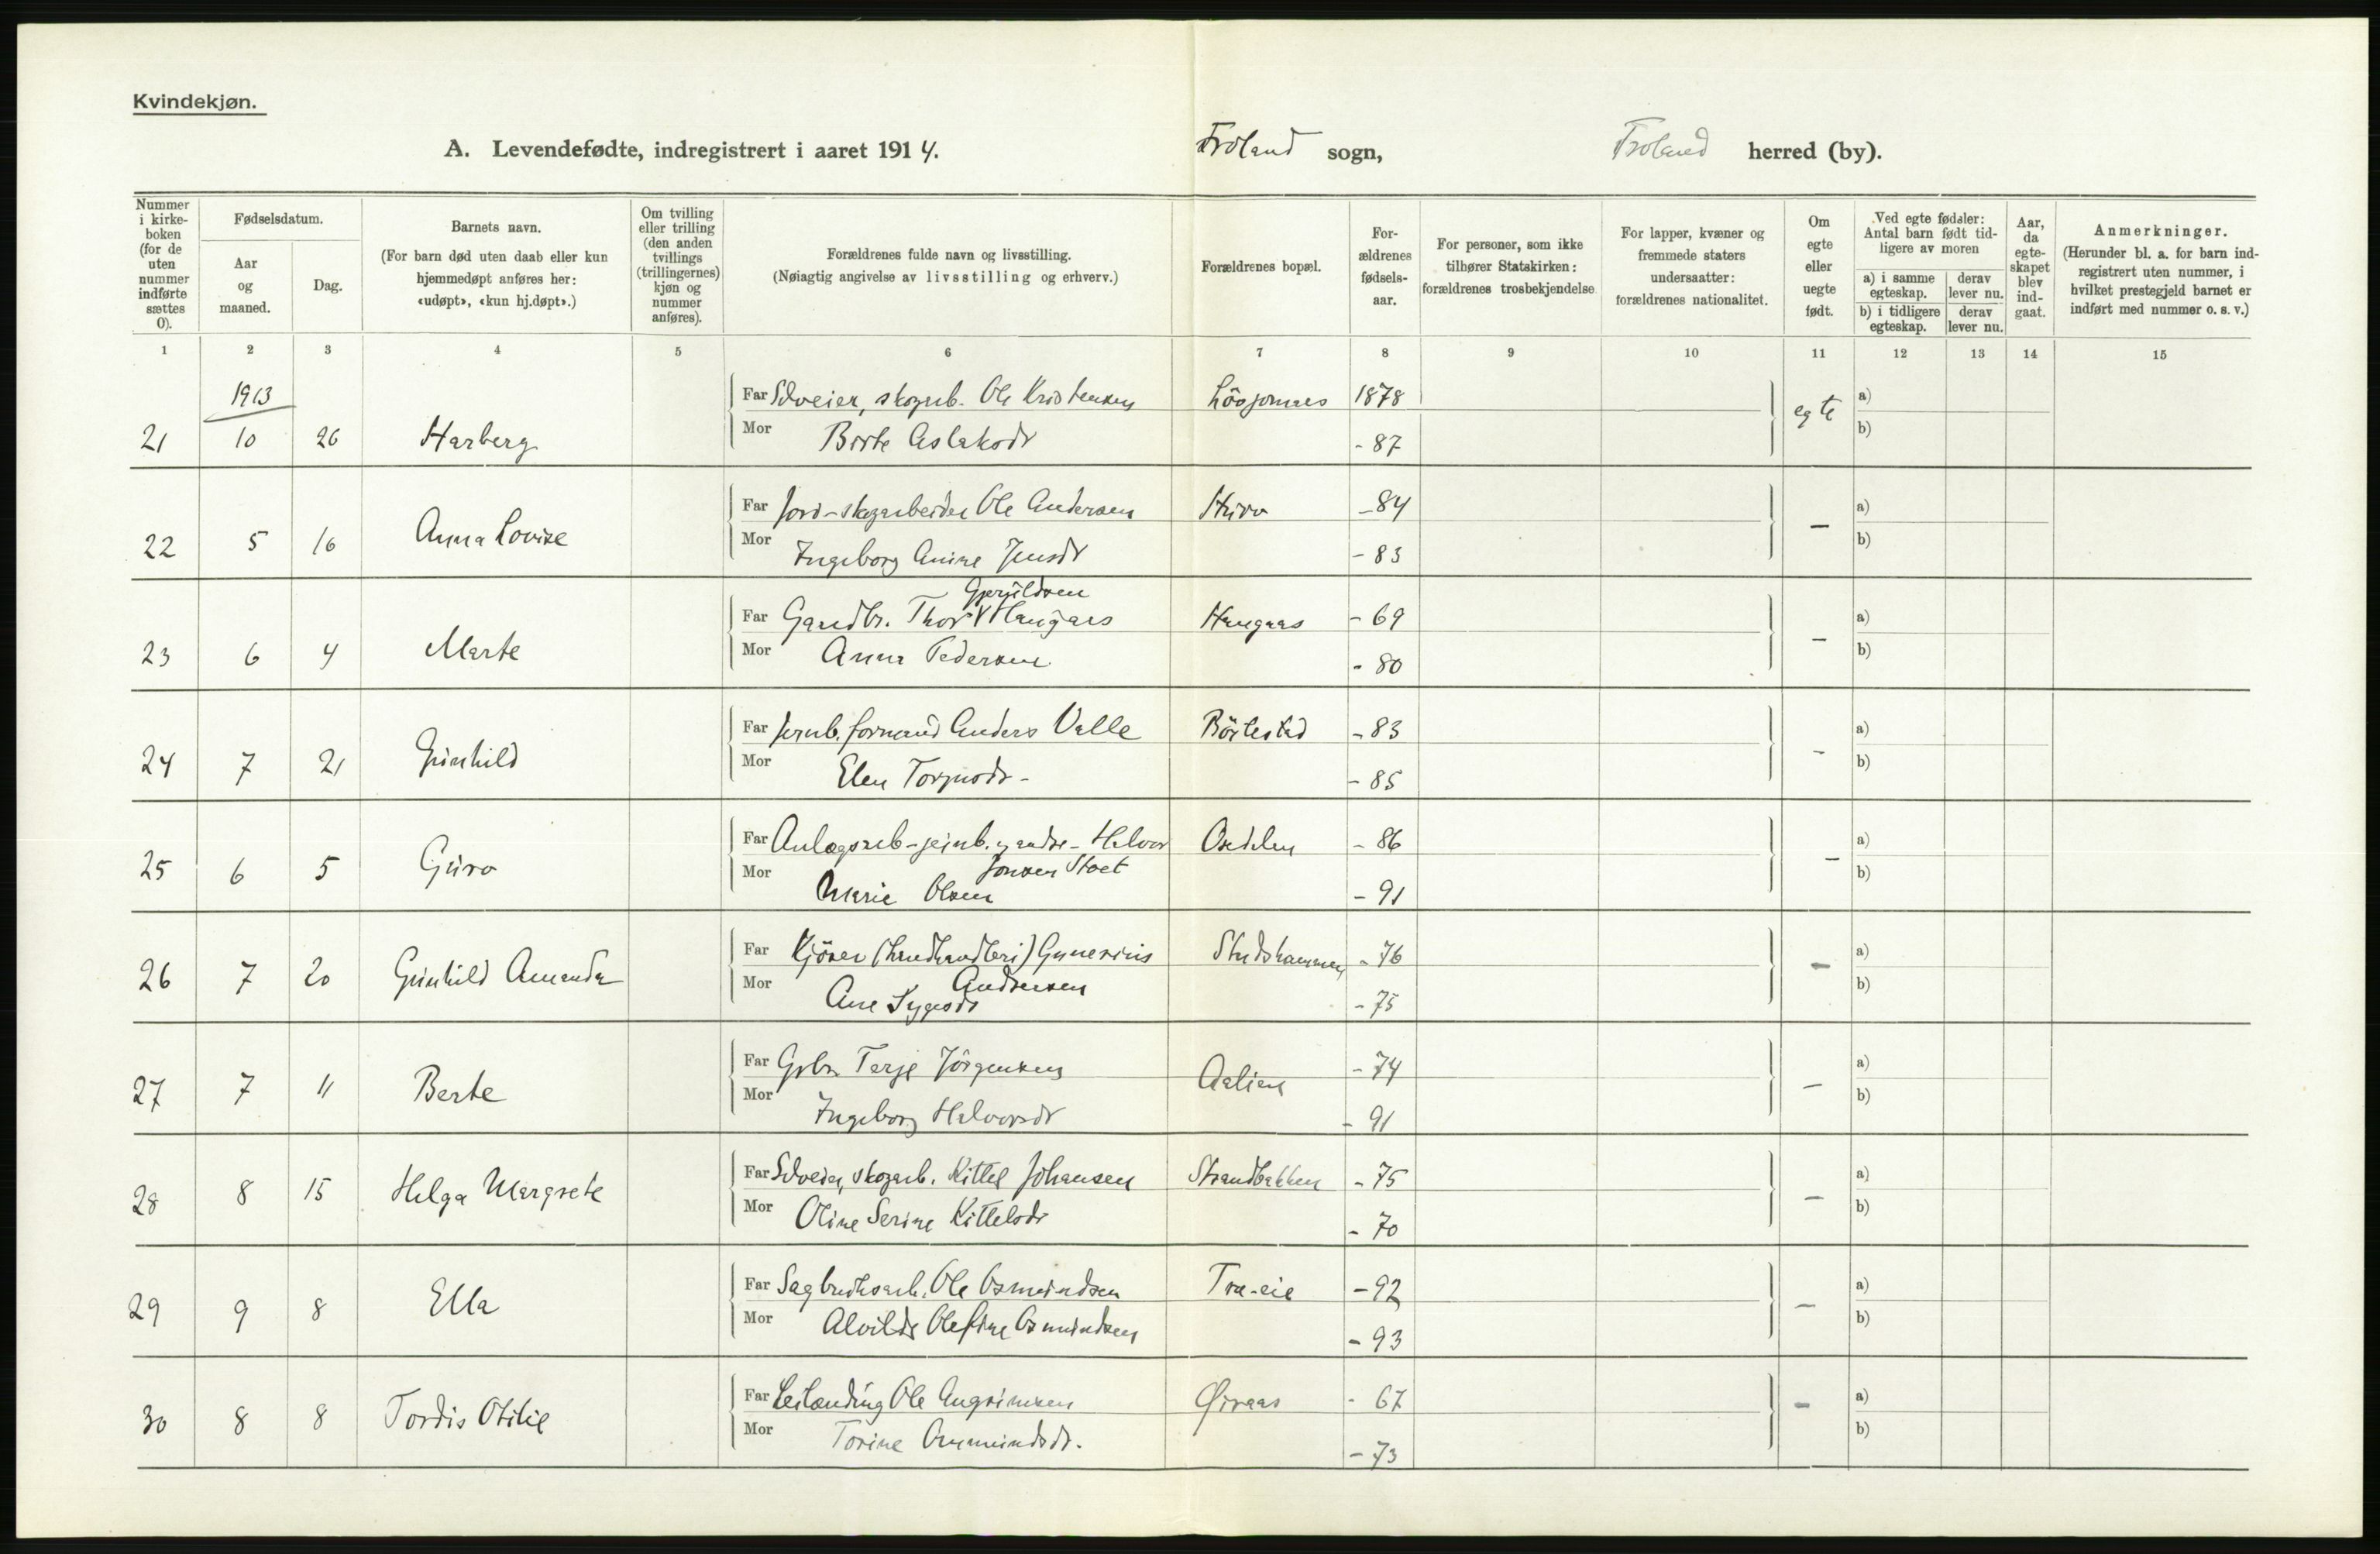 Kvindekjøn.
A. Levendefødte, indregistrert i aaret 1914. Froland sogn, Froland herred (by).
Nummer i kirkeboken (for de uten nummer indførte sættes 0).
Fødselsdatum.
Aar og maaned.
Dag.
Barnets navn.
(For barn død uten daab eller kun hjemmedøpt anføres her: «udøpt», «kun hj.døpt».)
Om tvilling eller trilling (den anden tvillings (trillingernes) kjøn og nummer anføres).
Forældrenes fulde navn og livsstilling.
(Nøiagtig angivelse av livsstilling og erhverv.)
Forældrenes bopæl.
Forældrenes fødselsaar.
For personer, som ikke tilhører Statskirken: forældrenes trosbekjendelse
For lapper, kvæner og fremmede staters undersaatter: forældrenes nationalitet.
Om egte eller uegte født.
Ved egte fødsler: Antal barn født tidligere av moren
a) i samme egteskap. derav lever nu.
b) i tidligere egteskap. derav lever nu.
Aar, da egteskapet blev indgaat.
Anmerkninger.
(Herunder bl. a. for barn indregistrert uten nummer, i hvilket prestegjeld barnet er indført med nummer o. s. v.)
1 2 3 4 5 6 7 8 9 10 11 12 13 14 15
1913
Far Selveier, skogarb. Ole Kristensen 1878 egte a)
21 10 26 Harberg Mor Birte Aslaksdr - 87 b)
Far Jord-skogarbeider Ole Andersen -84 a)
22 5 16 Anna Lovise Mor Ingeborg Anine Jensdr - 83 — b)
Gjeruldsen
Far Gaardbr. Thor Haugaas Haugaas - 69 a)
23 6 4 Marte Mor Anna Pedersen - 80 — b)
Far formand Anders Valle Bøilestad - 83 a)
24 7 21 Gunhild Mor Elen - 85 — b)
Far Halvor - 86 a)
25 6 5 Guro Jonsen
Mor Marie Olsen - 91 — b)
Far (landhandleri) Gunerius - 76 a)
26 7 20 Gunhild Amanda Andersen
Mor Ane - 75 — b)
Far Gbr. Terje Jörgensen - 74 a)
27 7 11 Berte Mor Ingeborg Halvorsdr - 91 — b)
Far Selveier, skogarb. Kittel Johansen Strandbakken - 75 a)
28 8 15 Helga Margrete Mor Oline Serine Kittelsdr - 70 — b)
Far Sagbruksarb. Ole Osmundsen -92 a)
29 9 8 Ella Mor Alvilde Olefine Osmundsen - 93 — b)
Far Leilænding Ole - 67 a)
30 8 8 Tordis Otilie Mor Torine - 73 — b)